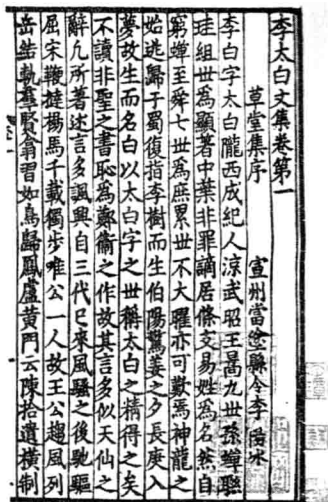 李太白文集卷第一
草堂集序 宣州當塗縣令李陽冰
李白字太白隴西成紀人涼武昭王暠九世孫蟬聯
珪組世爲顯著中葉非罪謫居條支易姓爲名然自
窮蟬至舜七世爲庶累世不大曜亦可歎焉神龍之
始逃歸于蜀復指李樹而生伯陽驚姜之夕長庚入
夢故生而名白以太白字之世稱太白之精得之矣
不讀非聖之書恥爲鄭衞之作故其言多似天仙之
辭凡所著述言多諷興自三代已來風騷之後馳驅
屈宋鞭撻揚馬千載獨步唯公一人故王公趨風列
岳結軌羣賢翕習如鳥歸鳳盧黃門云陳拾遺橫制